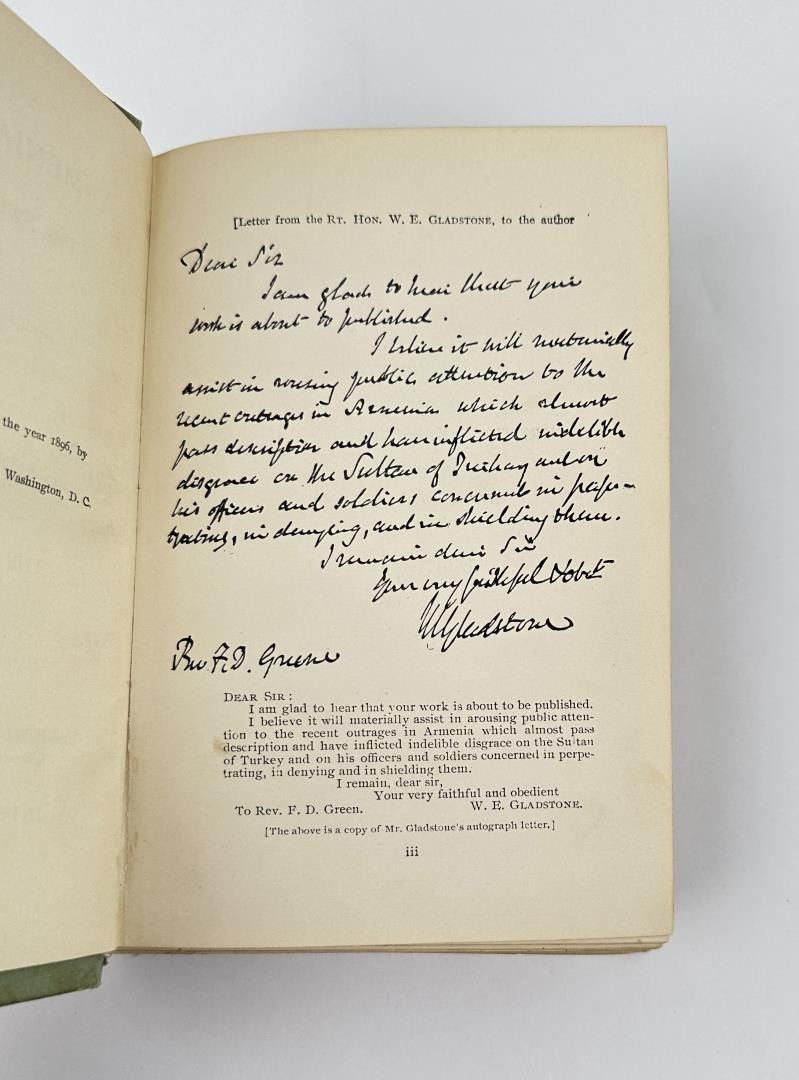 MENIA
the year 1896, by
Washington, D. C.
[Letter from the RT. HON. W. E. GLADSTONE, to the author
Dear Sir
I am glad to hear that your
work is about to published.
I believe it will materially
assist in rousing public attention to the
recent outrages in Armenia which almost
pass description and have inflicted indelible
disgrace on the Sultan of Turkey and on
his officers and soldiers concerned in perpe-
trating, in denying, and in shielding them.
I remain dear Sir
Your very faithful & obet
WEGladstone
Rev F. D. Greene
DEAR SIR:
I am glad to hear that your work is about to be published.
I believe it will materially assist in arousing public atten-
tion to the recent outrages in Armenia which almost pass
description and have inflicted indelible disgrace on the Sultan
of Turkey and on his officers and soldiers concerned in perpe-
trating, in denying and in shielding them.
I remain, dear sir,
Your very faithful and obedient
To Rev. F. D. Green. W. E. GLADSTONE.
[The above is a copy of Mr. Gladstone's autograph letter.]
iii